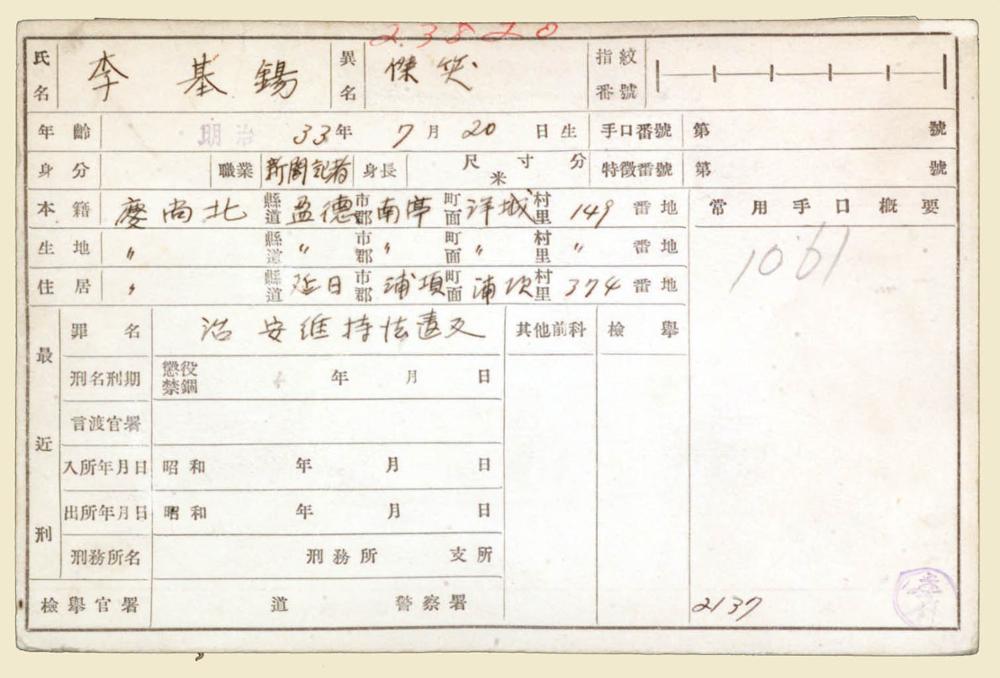 23820
氏名 李基錫 異名 傑笑 指紋番號
年齡 明治 33年 7月 20日生 手口番號 第 號
身分 職業 新聞記者 身長 尺寸分 米 特徵番號 第 號
本籍 慶尚北 縣道 盈德 市郡 南亭 町面 洋城 村里 149 番地 常用手口概要
生地 〃 縣道 〃 市郡 〃 町面 〃 村里 〃 番地 1061
住居 〃 縣道 延日 市郡 浦項 町面 浦項 村里 374 番地
最近刑 罪名 治安維持法違反 其他前科 檢擧
刑名刑期 懲役 禁錮 年 月 日
言渡官署
入所年月日 昭和 年 月 日
出所年月日 昭和 年 月 日
刑務所名 刑務所 支所
檢擧官署 道 警察署 2137